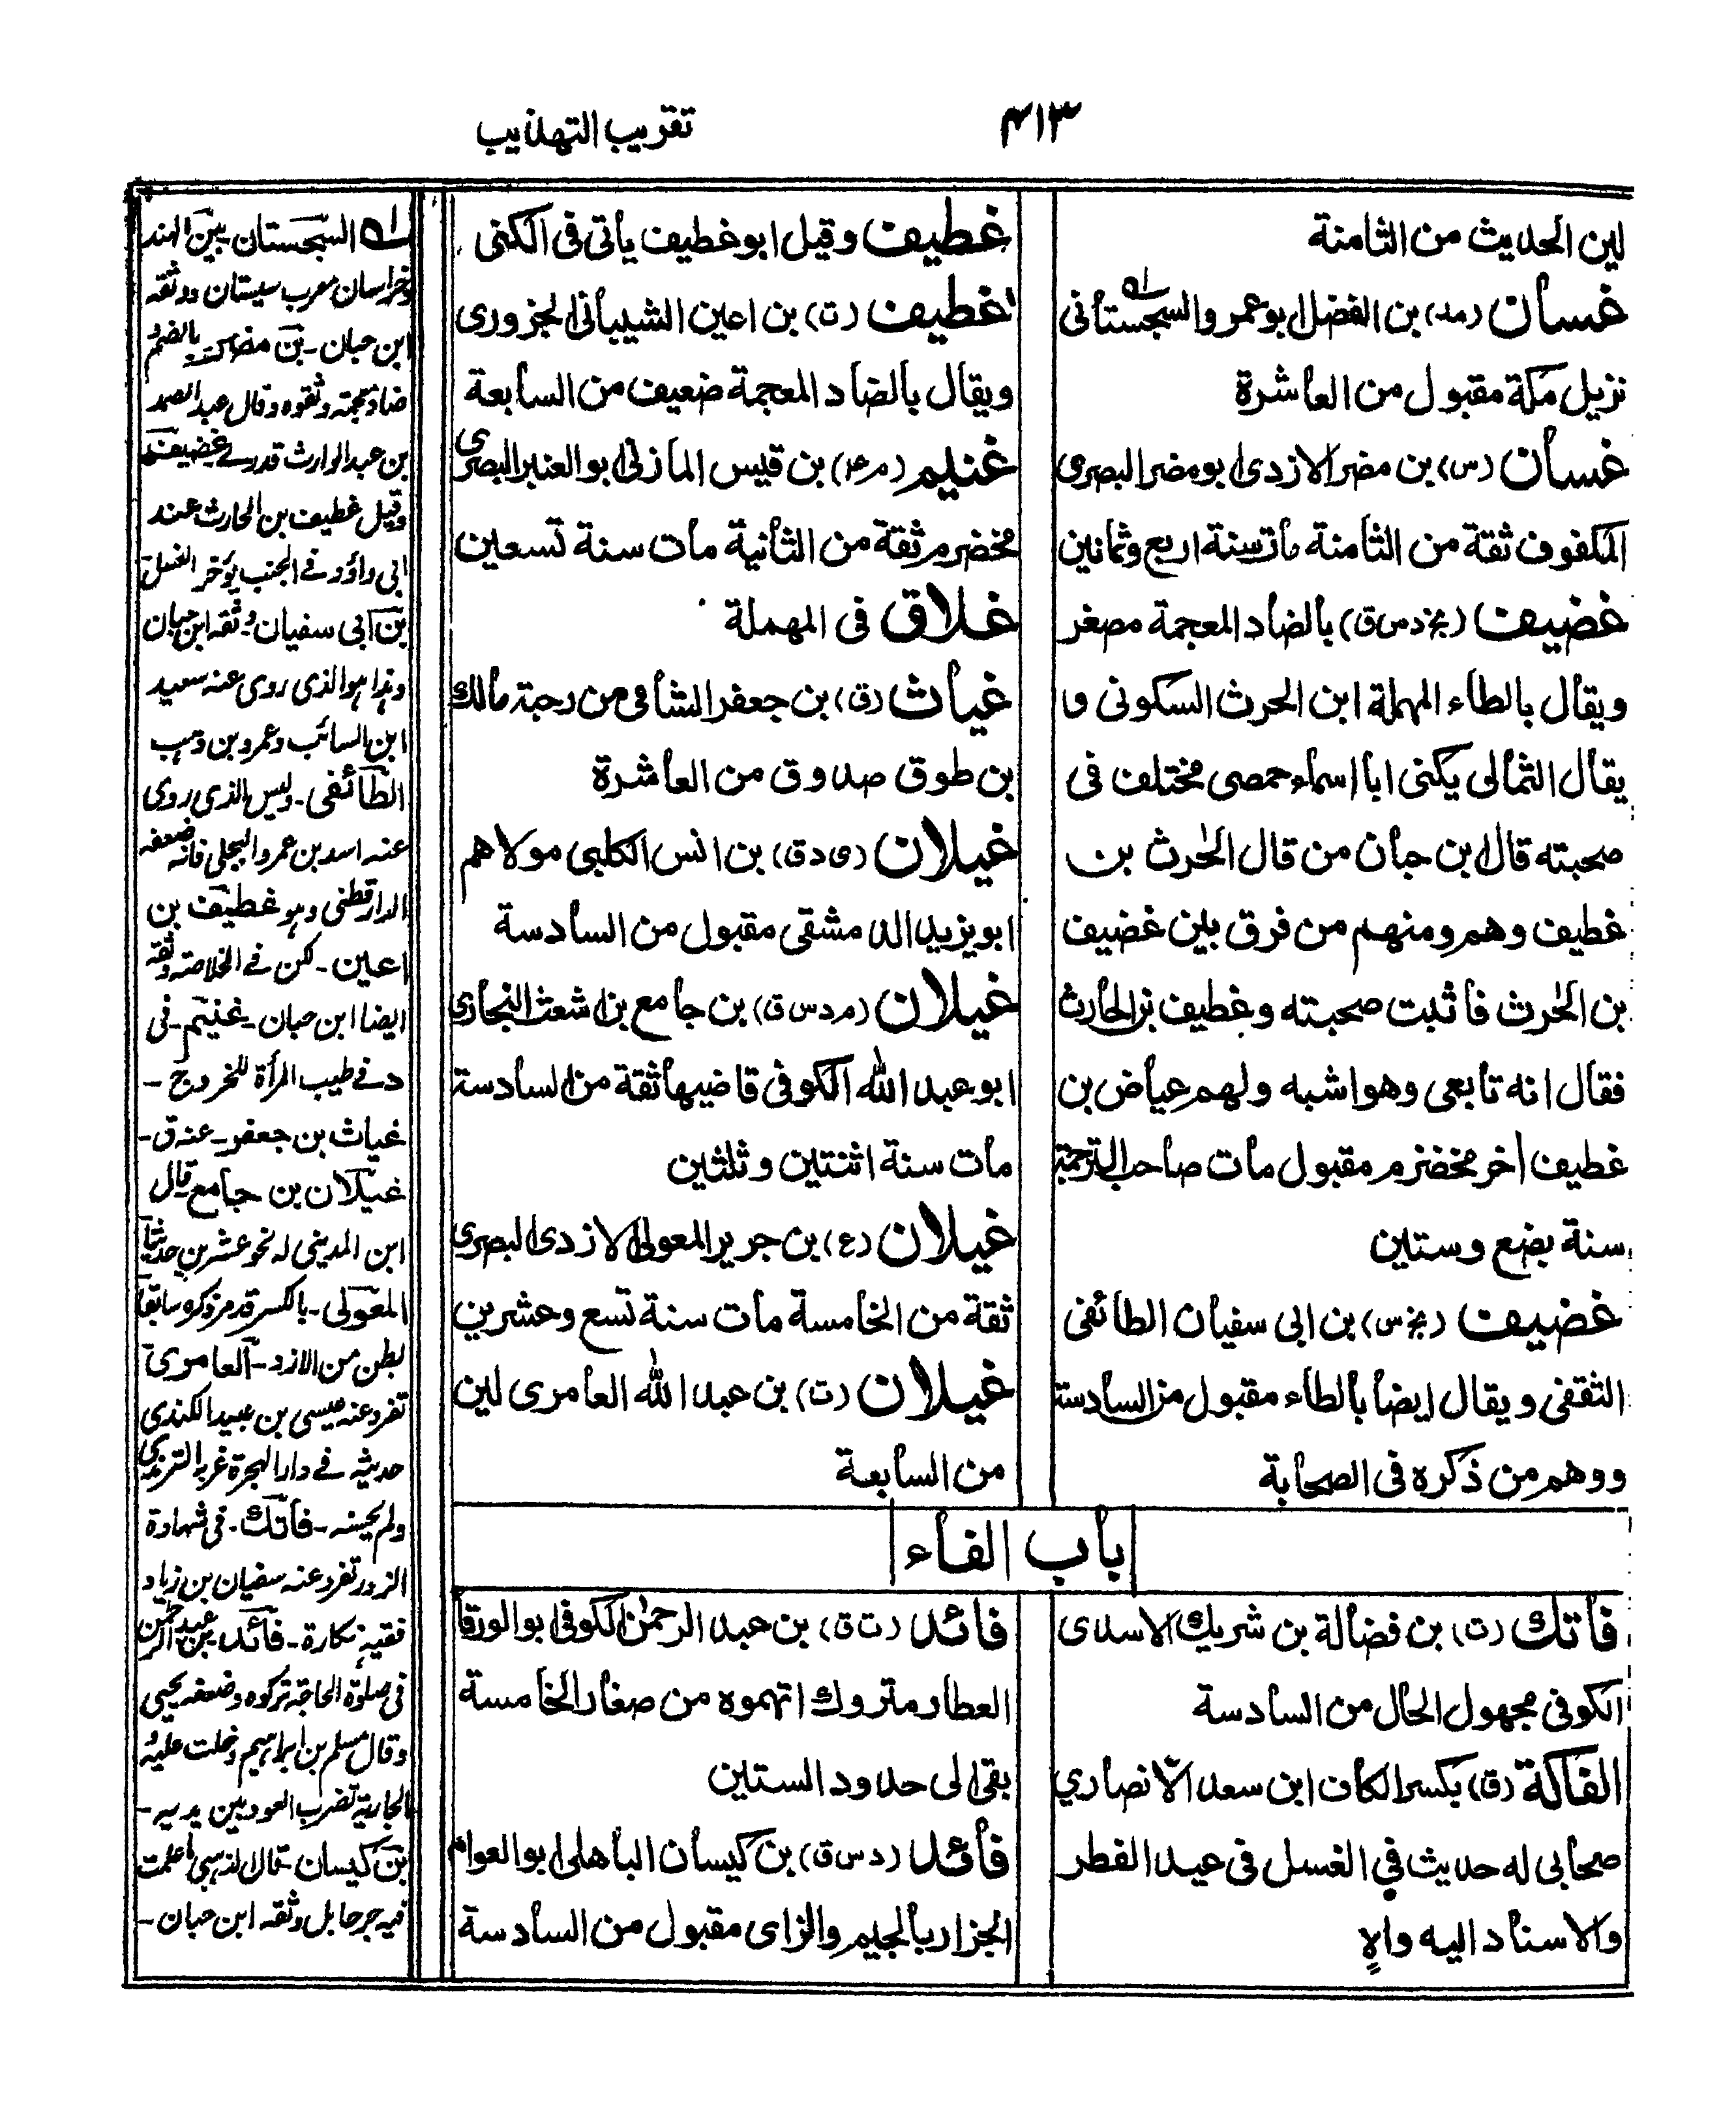 ٤١٣
تقريب التهذيب
لين الحديث من الثامنة
غسان (مد) بن الفضل ابو عمرو السجستانى
نزيل مكة مقبول من العاشرة
غسان (س) بن مضر الازدى ابو مضر البصرى
المكفوف ثقة من الثامنة مات سنة اربع وثمانين
غضيف (بخ د س ق) بالضاد المعجمة مصغر
ويقال بالطاء المهملة ابن الحرث السكونى و
يقال الثمالى يكنى ابا اسماء حمصى مختلف فى
صحبته قال ابن حبان من قال الحرث بن
غطيف وهم ومنهم من فرق بين غضيف
بن الحرث فاثبت صحبته وغطيف بن الحارث
فقال انه تابعى وهو اشبه ولهم عياض بن
غطيف اخر مخضرم مقبول مات صاحب الترجمة
سنة بضع وستين
غضيف (بخ س) بن ابى سفيان الطائفى
الثقفى ويقال ايضا بالطاء مقبول من السادسة
ووهم من ذكره فى الصحابة
غطيف وقيل ابو غطيف يأتى فى الكنى
غطيف (ت) بن اعين الشيبانى الجزورى
ويقال بالضاد المعجمة ضعيف من السابعة
غنيم (م عه) بن قيس المازنى ابو العنبر البصرى
مخضرم ثقة من الثانية مات سنة تسعين
غلاق فى المهملة
غياث (ق) بن جعفر الشامى من رحبة مالك
بن طوق صدوق من العاشرة
غيلان (ى د ق) بن انس الكلبى مولاهم
ابو يزيد الدمشقى مقبول من السادسة
غيلان (م د س ق) بن جامع بن اشعث النجارى
ابو عبد الله الكوفى قاضيها ثقة من السادسة
مات سنة اثنتين وثلثين
غيلان (ع) بن جرير المعولى الازدى البصرى
ثقة من الخامسة مات سنة تسع وعشرين
غيلان (ت) بن عبد الله العامرى لين
من السابعة
باب الفاء
فاتك (ت) بن فضالة بن شريك الاسدى
الكوفى مجهول الحال من السادسة
الفاكة (ق) بكسر الكاف ابن سعد الانصاري
صحابى له حديث في الغسل فى عيد الفطر
والاسناد اليه واهٍ
فائد (ت ق) بن عبد الرحمن الكوفى ابو الورقا
العطار متروك اتهموه من صغار الخامسة
بقى الى حدود الستين
فائد (د س ق) بن كيسان الباهلى ابو العوام
الجزار بالجيم والزاى مقبول من السادسة
له السجستان بين الهند
وخراسان معرب سيستان ووثقه
ابن حبان - بن مضر بالضم
ضاد معجمة وثقوه وقال عبد الصمد
بن عبد الوارث قدرى غضيف
وقيل غطيف بن الحارث عند
ابى داؤد فى الجنب يؤخر الغسل
بن ابى سفيان - وثقه ابن حبان
وهذا هو الذى روى عنه سعيد
ابن السائب وعمرو بن وهب
الطائفى - وليس الذى روى
عنه اسد بن عمرو البجلى فانه ضعفه
الدارقطنى وهو غطيف بن
اعين - لكن فى الخلاصة وثقه
ايضا ابن حبان - غنيم - فى
د فى طيب المرأة للخروج -
غياث بن جعفر - عنه ق -
غيلان بن جامع قال
ابن المدينى له نحو عشرين حديثا
المعولى - بالكسر قد مر ذكره سابقا
بطن من الازد - العامرى
تفرد عنه عيسى بن عبيد الكندى
حديثه فى دار الهجرة غربه الترمذى
ولم يحسنه - فاتك - فى شهادة
الزور تفرد عنه سفيان بن زياد
ففيه نكارة - فائد بن عبد الرحمن
فى صلوة الحاجة تركوه وضعفه يحيى
وقال مسلم بن ابراهيم دخلت عليه و
الجارية تضرب العود بين يديه -
بن كيسان - قال الذهبى ما علمت
فيه جرحا بل وثقه ابن حبان -